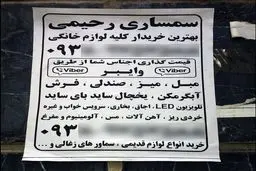 سمساری رحیمی
بهترین خریدار کلیه لوازم خانگی
۰۹۳
قیمت گذاری اجناس شما از طریق
Viber وایبر Viber
مبل ، میز ، صندلی ، فرش
آبگرمکن ، یخچال ساید بای ساید
تلویزیون LED ، اجاق ، بخاری ، سرویس خواب و غیره
خردی ریز ، آهن آلات ، مس ، آلومینیوم و مفرغ
۰۹۳
خرید انواع لوازم قدیمی ، سماور های زغالی و ...